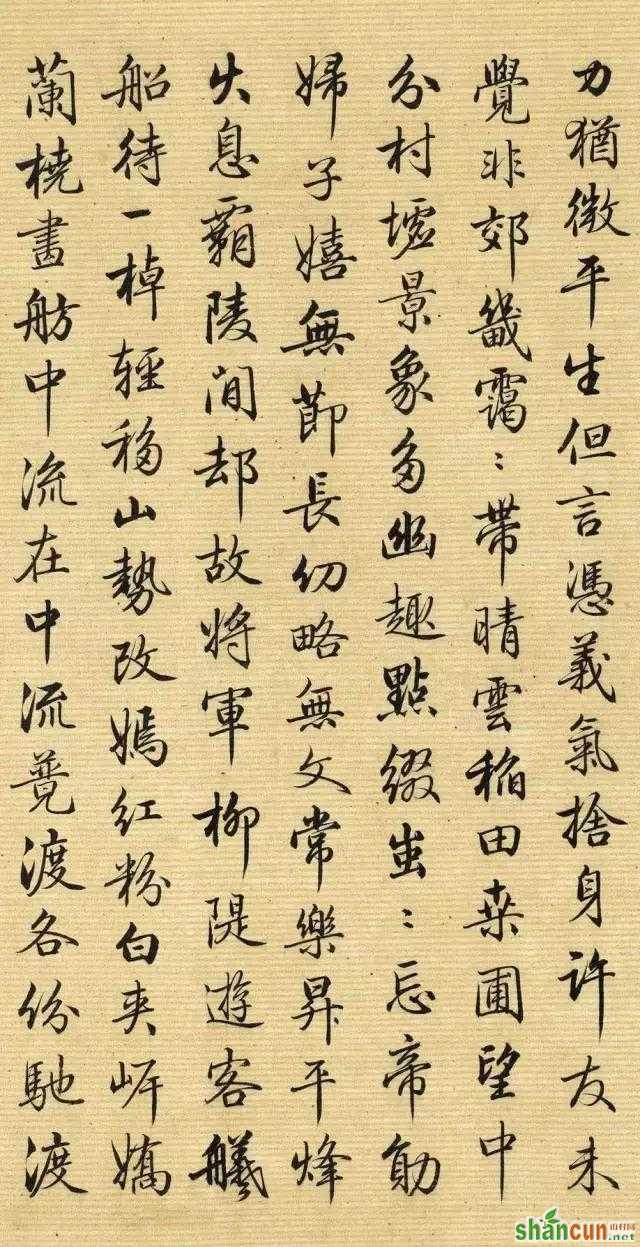 力猶微平生但言憑義氣捨身許友未
覺非郊畿靄〻帶晴雲稻田桑圃望中
分村墟景象多幽趣點綴蚩〻忘帝勛
婦子嬉無節長幼略無文常樂昇平烽
火息霸陵閒却故將軍柳隄遊客艤
船待一棹輕移山勢改嫣紅粉白夾岍嬌
蘭橈畫舫中流在中流競渡各份馳渡
shancun
山村网
.net